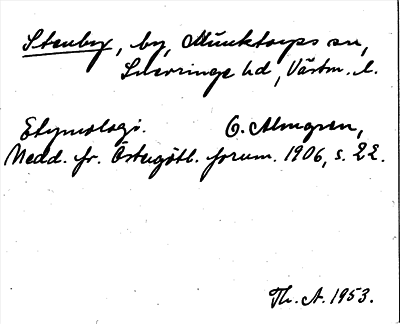 Stenby, by, Munktorps sn,
Snevringe hd, Västm. l.
Etymologi. O. Almgren,
Medd. fr. Östergötl. fornm. 1906, s. 22.
Th. A. 1953.